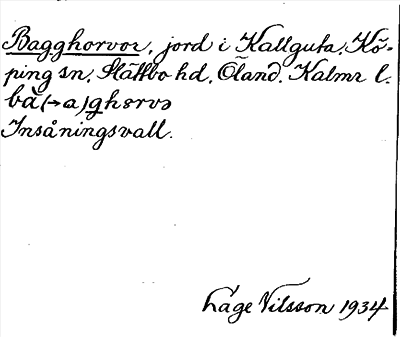 Bagghorvor, jord i Kallguta, Kö-
ping sn, Slättbo hd, Öland. Kalmr l.
bà(→a)ghɘrvɘ
Insåningsvall.
Låge Nilsson 1934